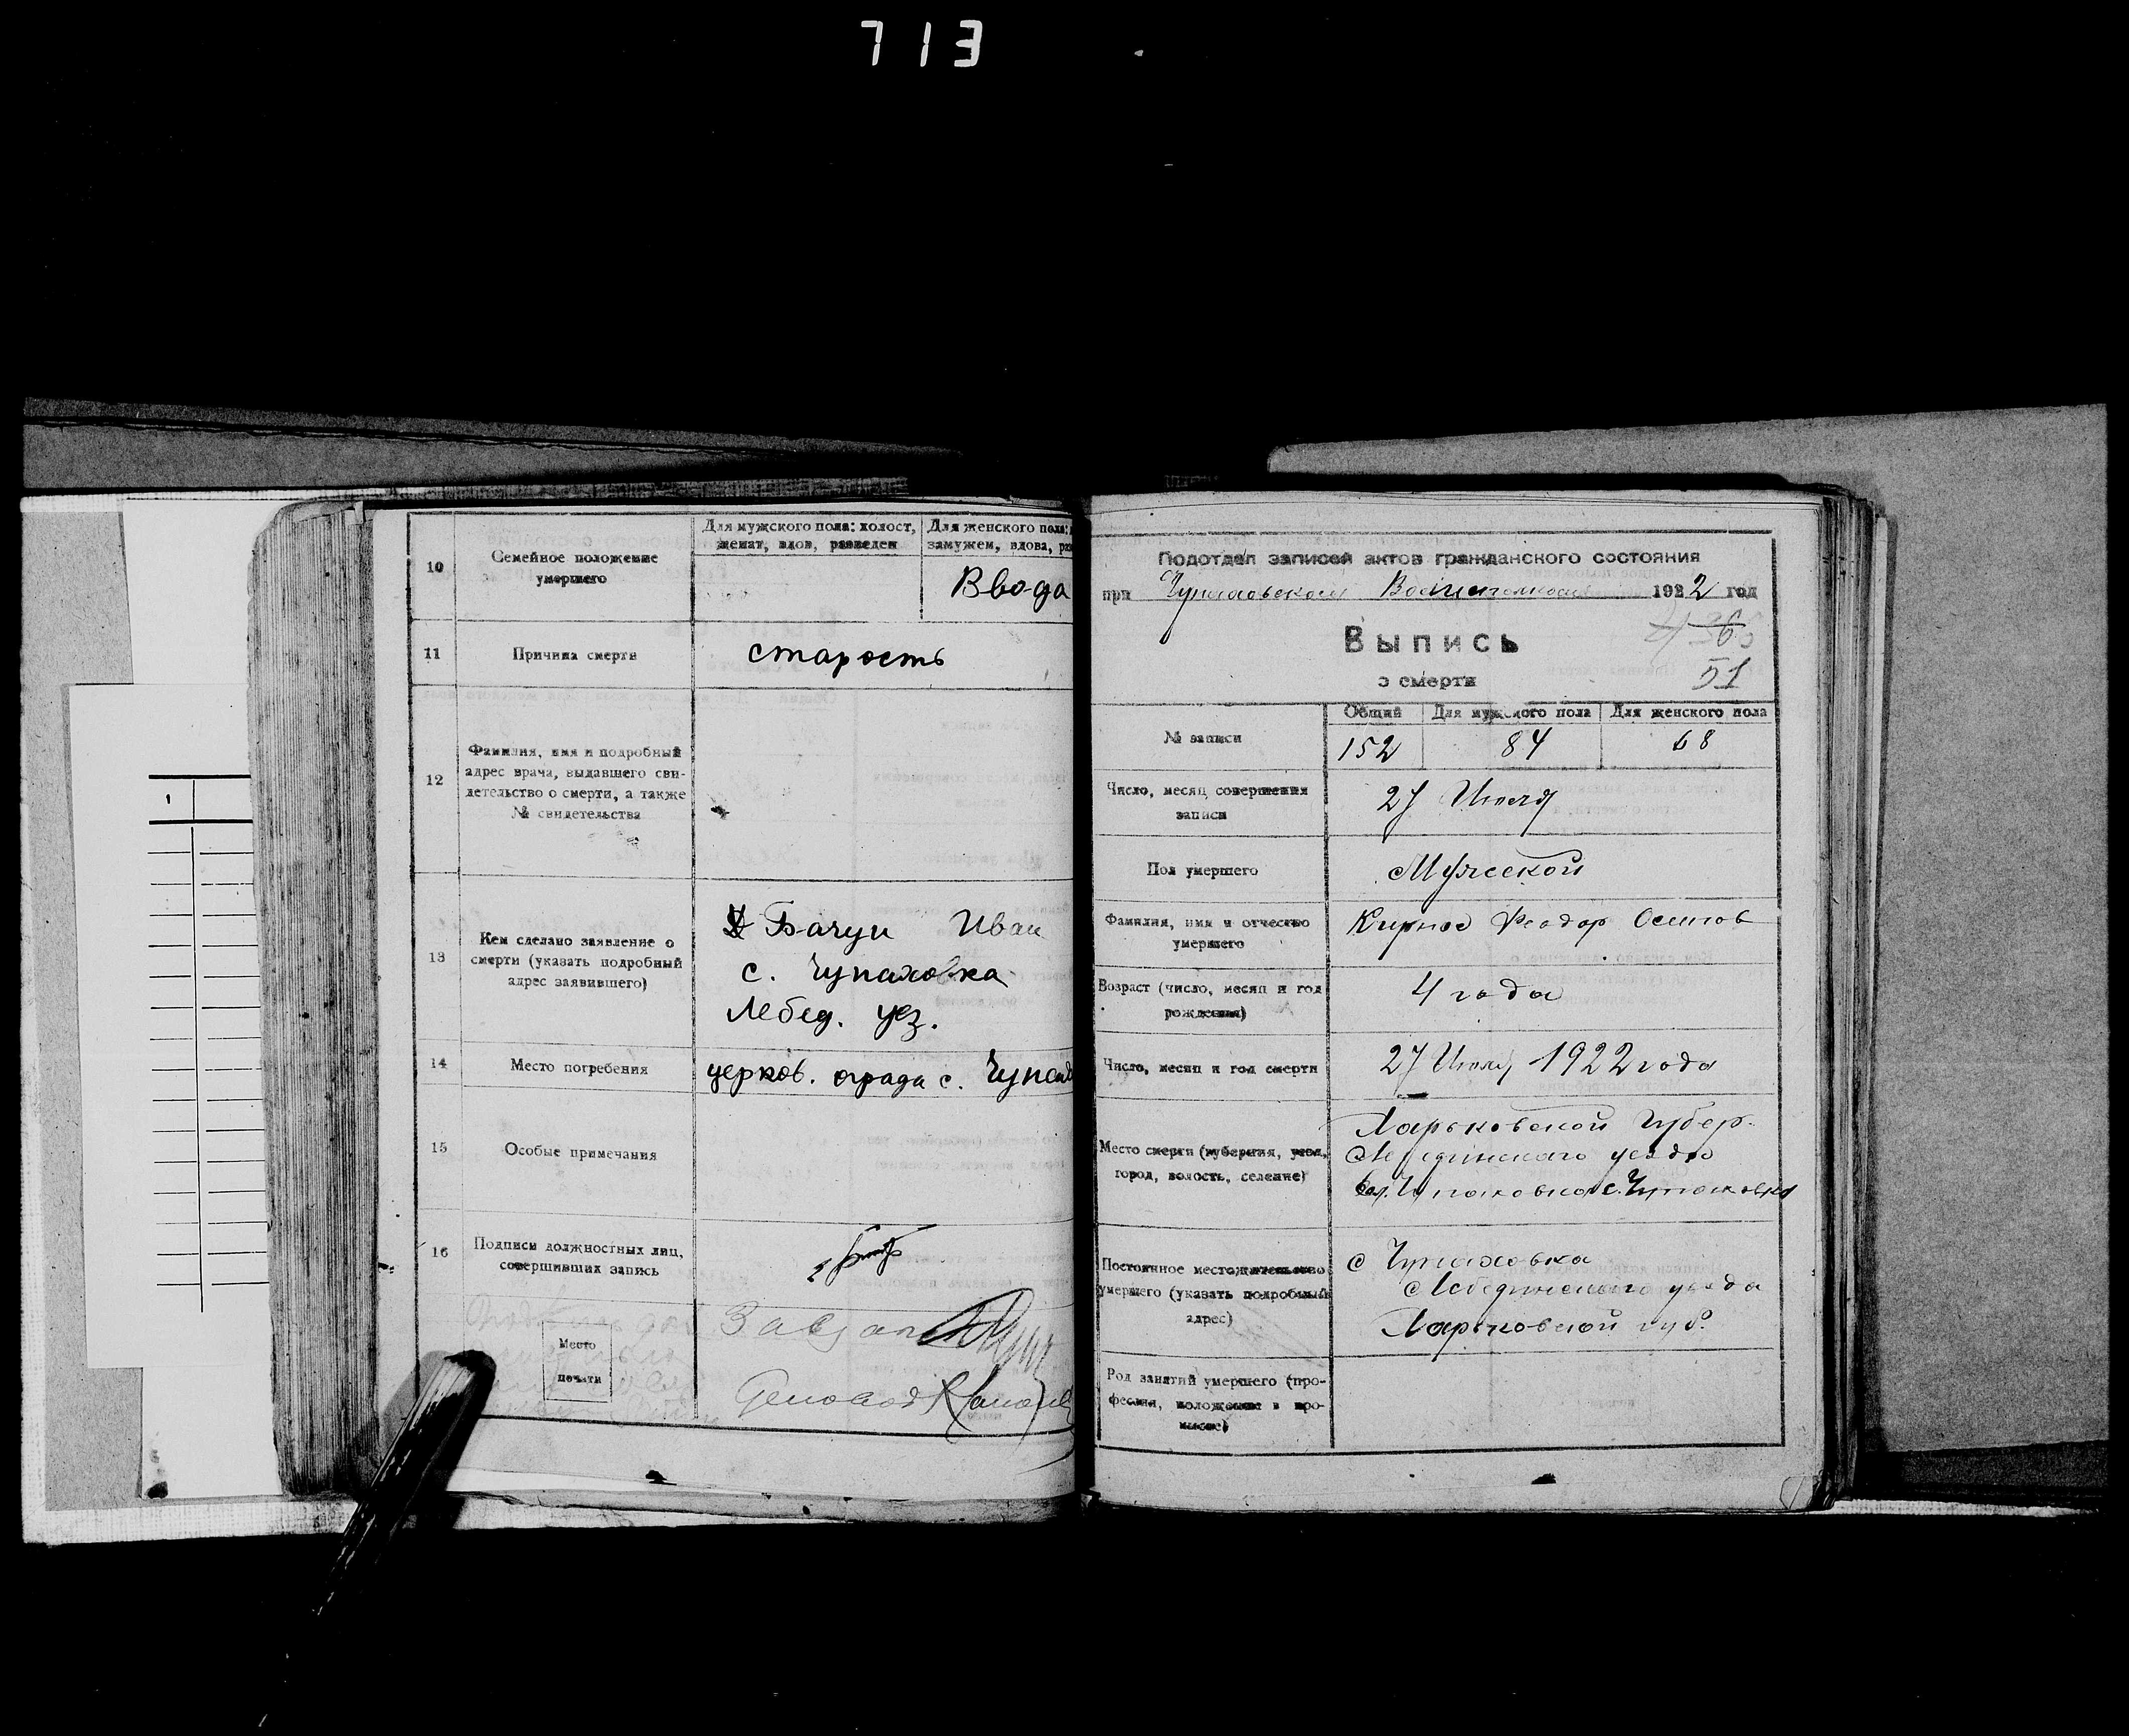 713
10
Семейное положение
умершего
Для мужского пола: холост,
женат, вдов, разведен
Для женского пола:
замужем, вдова, раз
Ввода
11
Причина смерти
старость
12
Фамилия, имя и подробный
адрес врача, выдавшего сви-
детельство о смерти, а также
№ свидетельства
13
Кем сделано заявление о
смерти (указать подробный
адрес заявившего)
Бачун Иван
с. Чупаховка
Лебед. уез.
14
Место погребения
церков. ограда с. Чупах
15
Особые примечания
16
Подписи должностных лиц,
совершивших запись
Место
печати
Подотдел записей актов гражданского состояния
при Чупаховском 1922 год
Выпись
о смерти
366
51
№ записи
Общий
Для мужского пола
Для женского пола
152
84
68
Число, месяц совершения
записи
27 Июля
Пол умершего
Мужской
Фамилия, имя и отчество
умершего
Кирнос Феодор Осипов
Возраст (число, месяц и год
рождения)
4 года
Число, месяц и год смерти
27 Июля 1922 года
Место смерти (губерния, уезд,
город, волость, селение)
Харьковской Губер.
Лебединского уезда
вол. Чупаховка с. Чупаховка
Постоянное местожительство
умершего (указать подробный
адрес)
с Чупаховка
Лебединского уезда
Харьковской губ.
Род занятий умершего (про-
фессия, положение в про-
мысле)